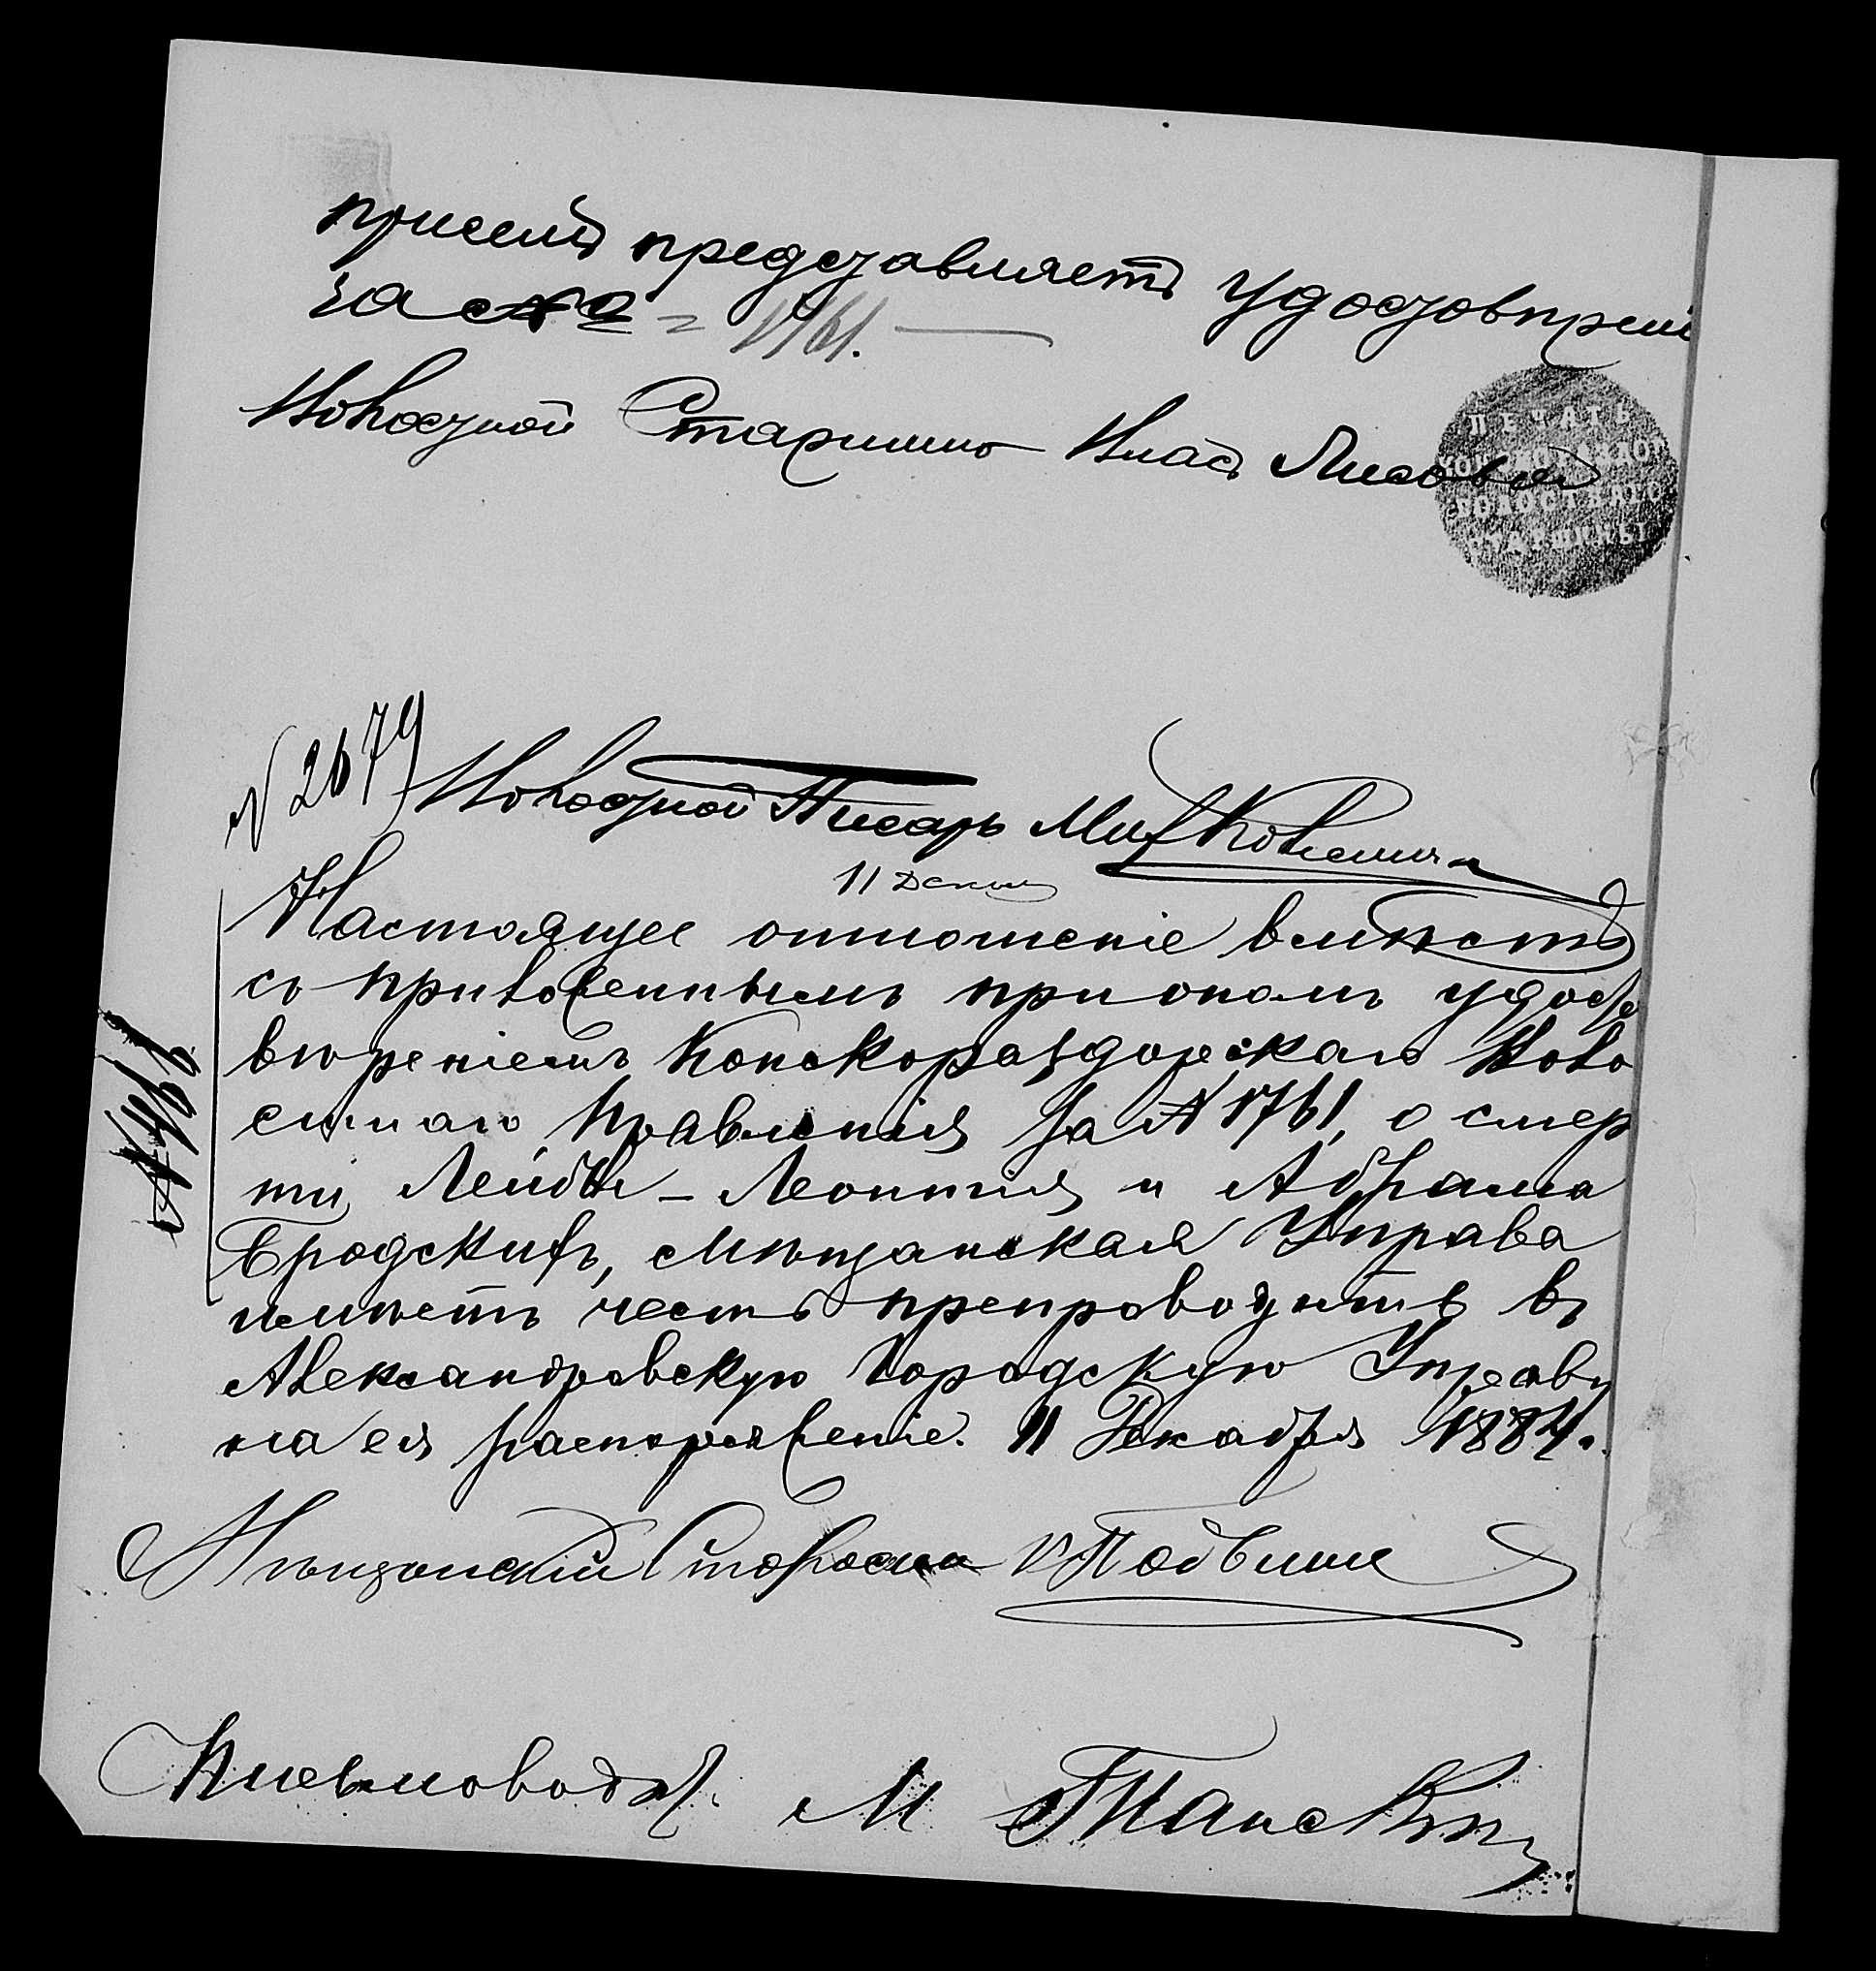 присемъ представляетъ удостовѣреніе
за № 1761.
Волостной Старшина Влас Лисовой
ПЕЧАТЬ
КОНСКОРАЗДОР
ВОЛОСТНАГО
СТАРШИНЫ
№ 2679
Волостной Писарь
11 Декаб
Настоящее отношеніе вмѣстѣ
съ приложеннымъ при ономъ удосто
вѣреніемъ Конскораздорскаго Воло
стнаго Правленія за № 1761, о смер
ти Лейбы-Леонтія и Абрама
Бродскихъ, Мѣщанская Управа
имѣетъ честь препроводить въ
Александровскую Городскую Управу
на ея распоряженіе. 11 Декабря 1884.
№ 466
Мѣщанскій Староста
Письмоводит.